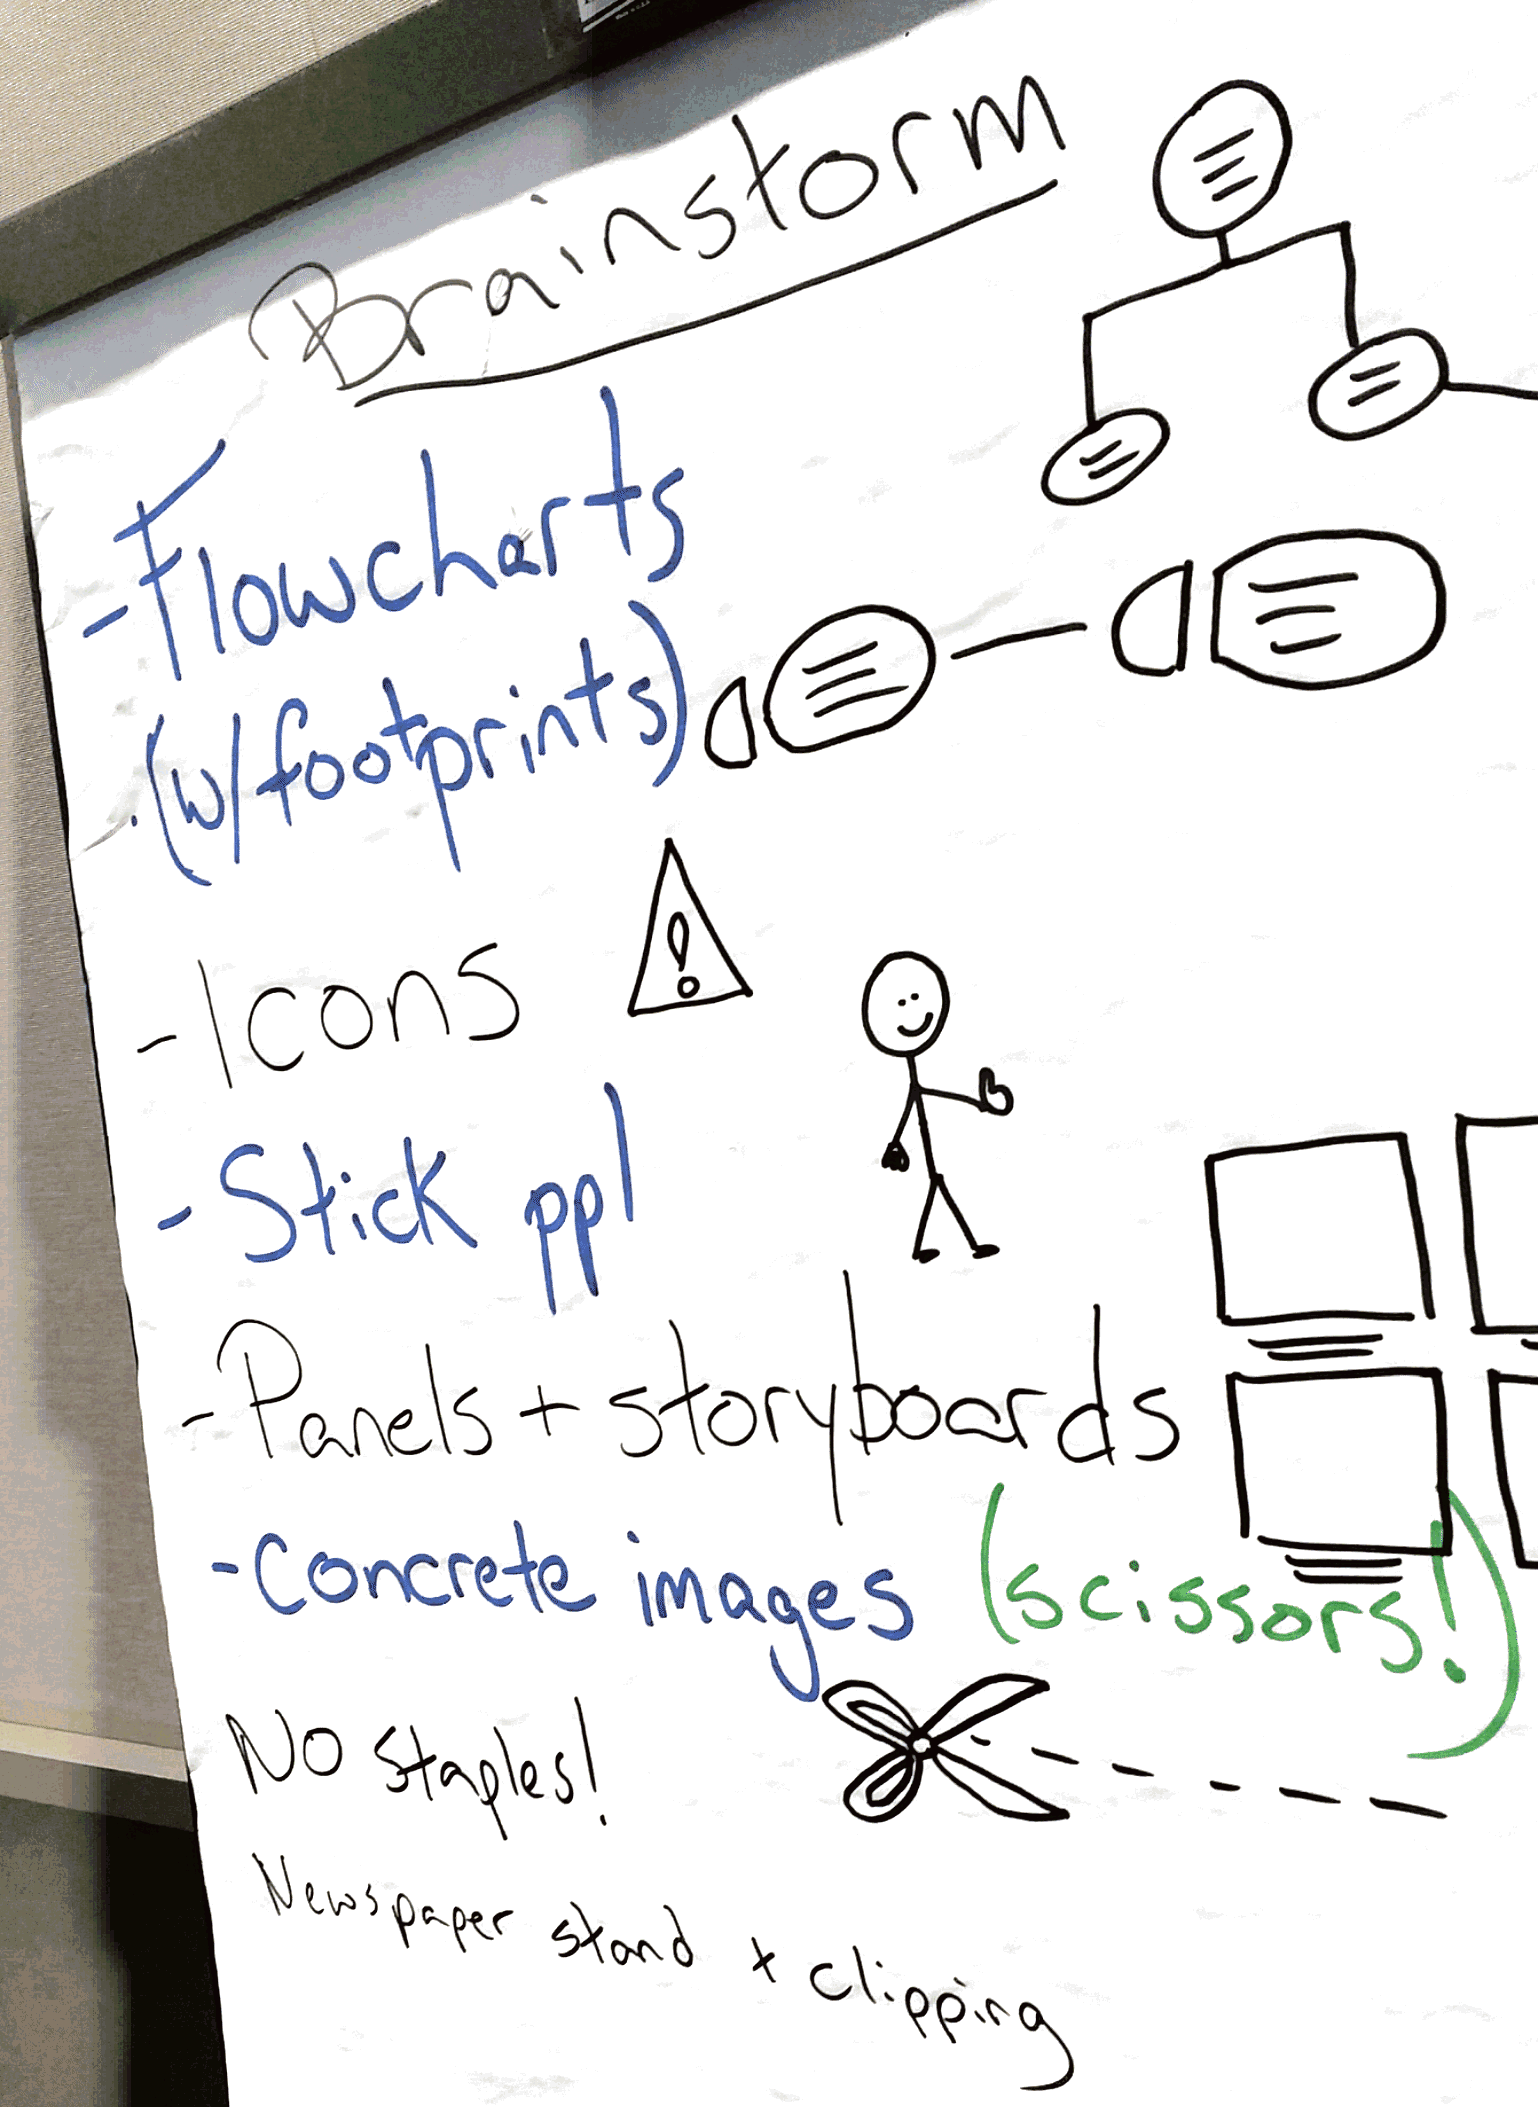 Brainstorm
- Flowcharts
(w/footprints)
- Icons
!
- Stick ppl
- Panels + storyboards
- Concrete images (scissors!)
No staples!
Newspaper stand + clipping